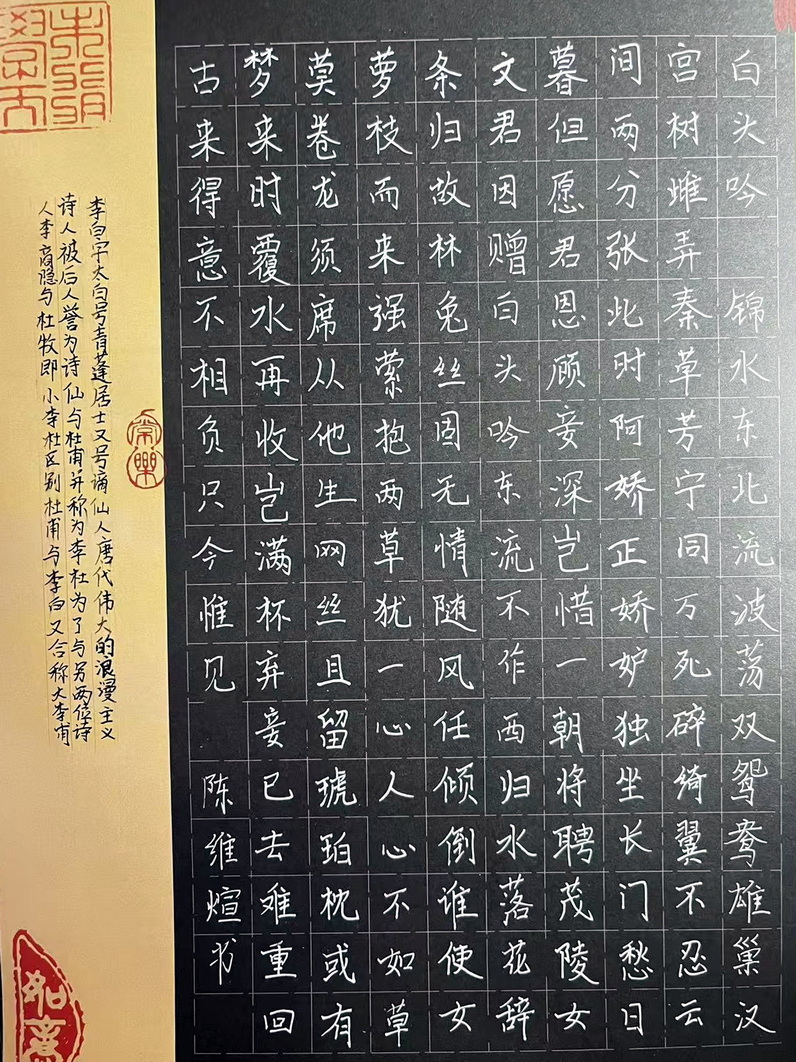 白头吟 锦水东北流波荡双鸳鸯雄巢汉
宫树雌弄秦草芳宁同万死碎绮翼不忍云
间两分张此时阿娇正娇妒独坐长门愁日
暮但愿君恩顾妾深岂惜一朝将聘茂陵女
文君因赠白头吟东流不作西归水落花辞
条归故林兔丝固无情随风任倾倒谁使女
萝枝而来强萦抱两草犹一心人心不如草
莫卷龙须席从他生网丝且留琥珀枕或有
梦来时覆水再收岂满杯弃妾已去难重回
古来得意不相负只今惟见 陈维煊书
李白字太白号青莲居士又号谪仙人唐代伟大的浪漫主义
诗人被后人誉为诗仙与杜甫并称为李杜为了与另两位诗
人李商隐与杜牧即小李杜区别杜甫与李白又合称大李甫
常樂
如意